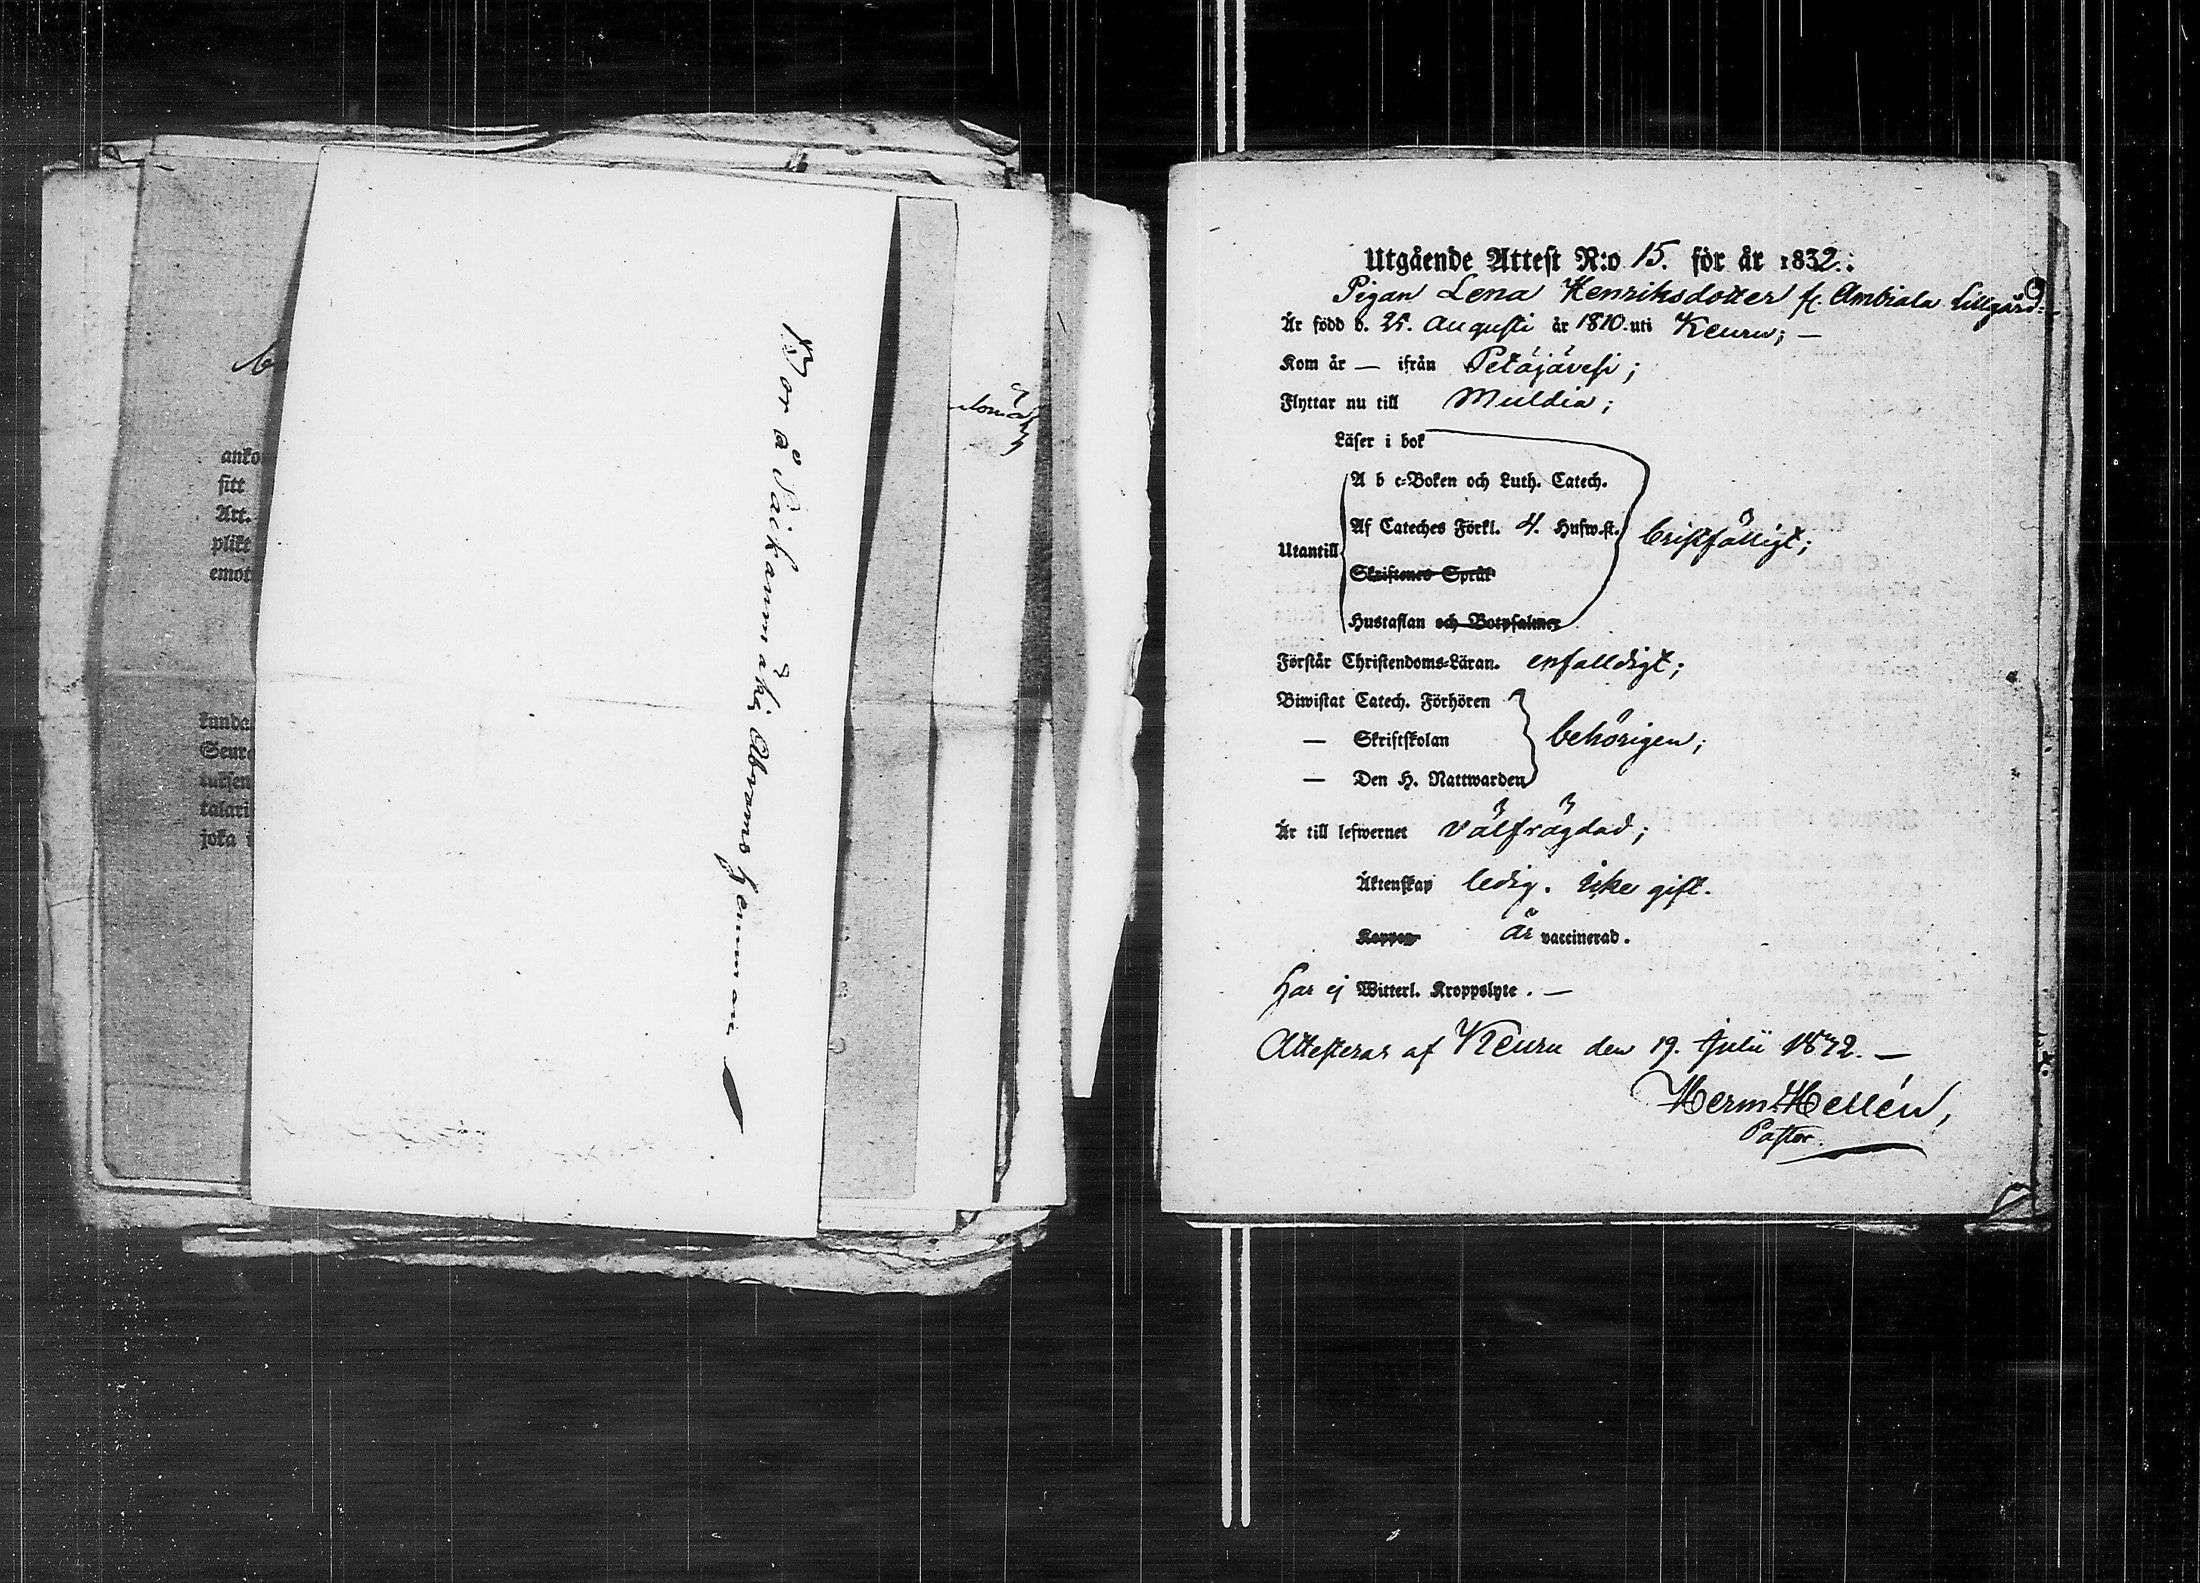 Bor å Saikanmäki Abrams hemman
anko
sitt
Art.
plikt
emot
kunda
Seura
talari
joka
Utgående Attest N:o 15. för år 1832.
Pigan Lena Henriksdotter fr. Ambiala Lillgård
Är född d. 25. Augusti år 1810. uti Keuru; —
Kom år — ifrån Petäjävesi;
Flyttar nu till Muldia;
Läser i bok
A b c-Boken och Luth. Catech.
Af Cateches Förkl. 4. Hufw.st. bristfälligt;
Utantill
Skriftenes Språk
Hustaflan och Botpsalmer
Förstår Christendoms-Läran. enfalldigt;
Biwistat Catech. Förhören
— Skriftskolan behörigen;
— Den H. Nattwarden
Är till lefwernet välfrägdad;
Äktenskap ledig. icke gift.
Koppor är vaccinerad.
har ej Witterl. Kroppslyte. —
Attesteras af Keuru den 19. Julii 1832. —
Herm. Hellén,
Pastor.